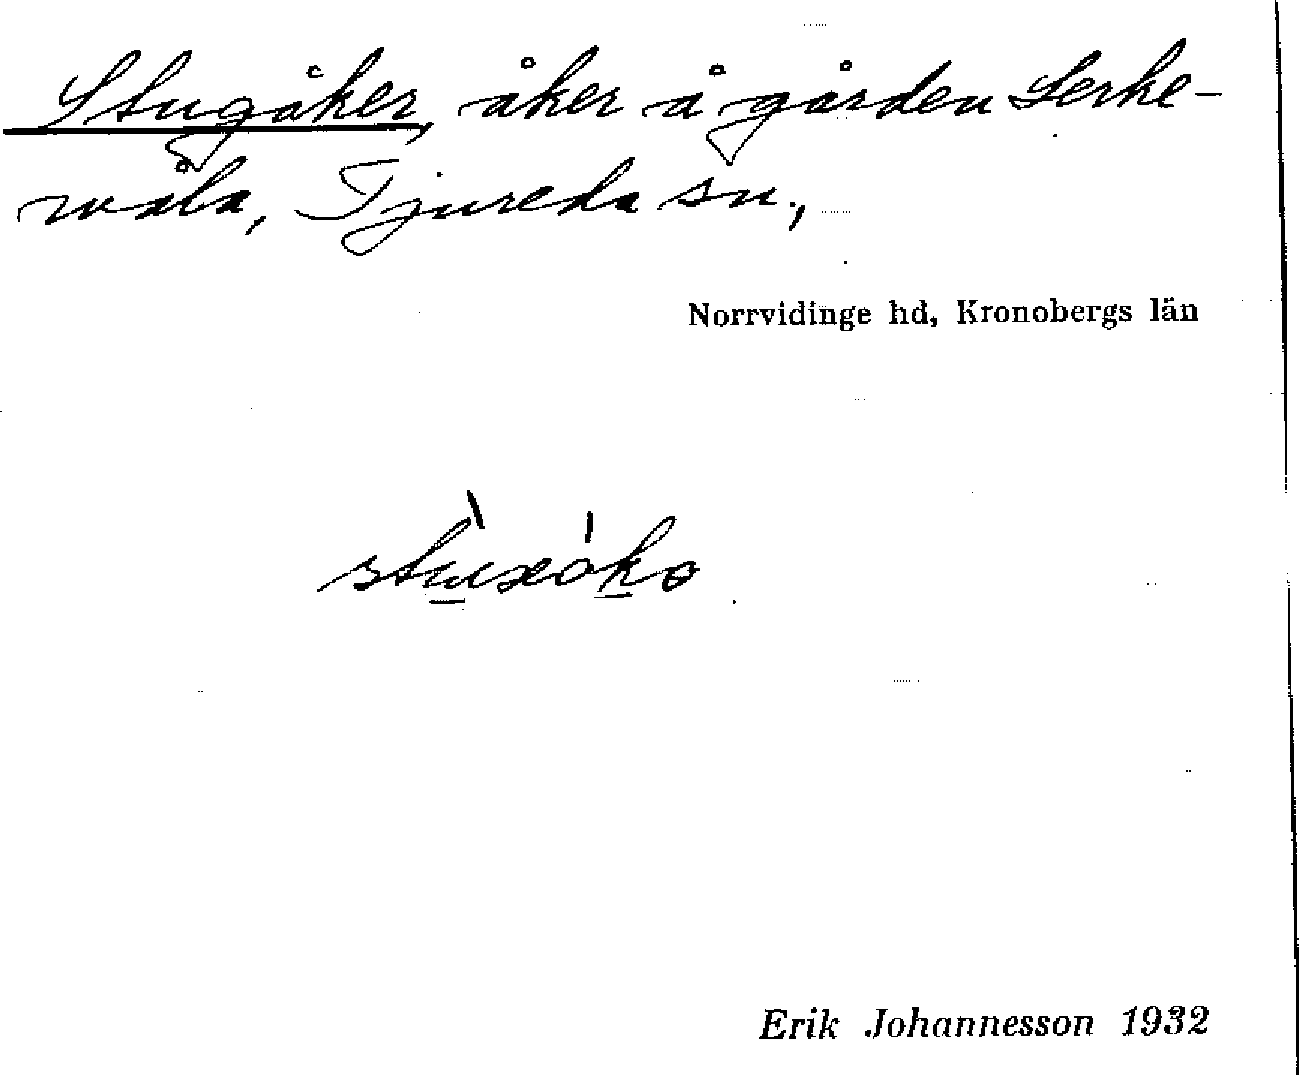 Stugåker, åker å gården Lerke-
måla, Tjureda sn.,
Norrvidinge hd, Kronobergs län
Erik Johannesson 1932